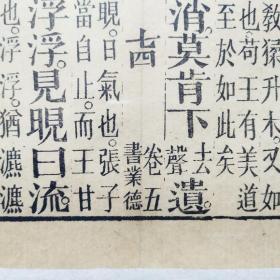 教猱升木又如
也苟王有美道
至於如此矣
消莫肯下去聲遺。
七四
卷五
書業德
晛。日氣也。張子
當自止。而王甘
浮浮。見晛曰流。
也。浮浮。猶瀌瀌